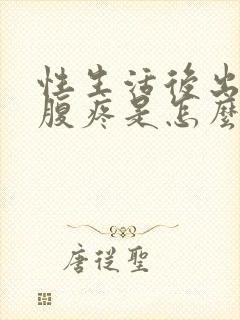 性生活後出
腹疼是怎麼
唐從聖